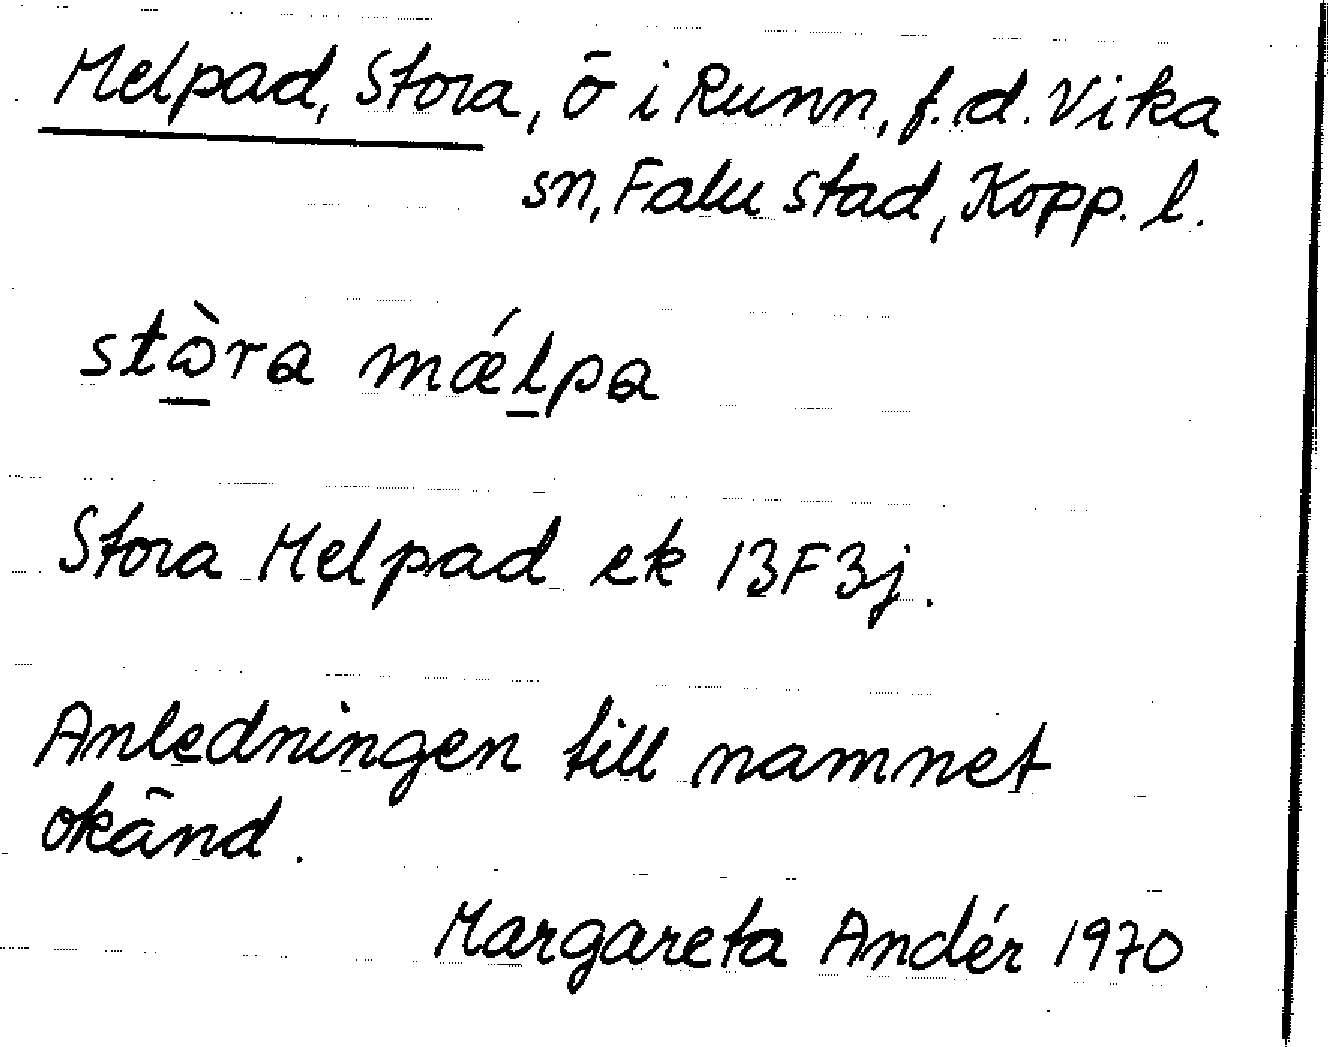 Melpad, Stora, ö i Runn, f.d. Vika
sn, Falu stad, Kopp. l.
stὼra mǽlpa
Stora Melpad ek 13F3j.
Anledningen till namnet
okänd.
Margareta Andér 1970